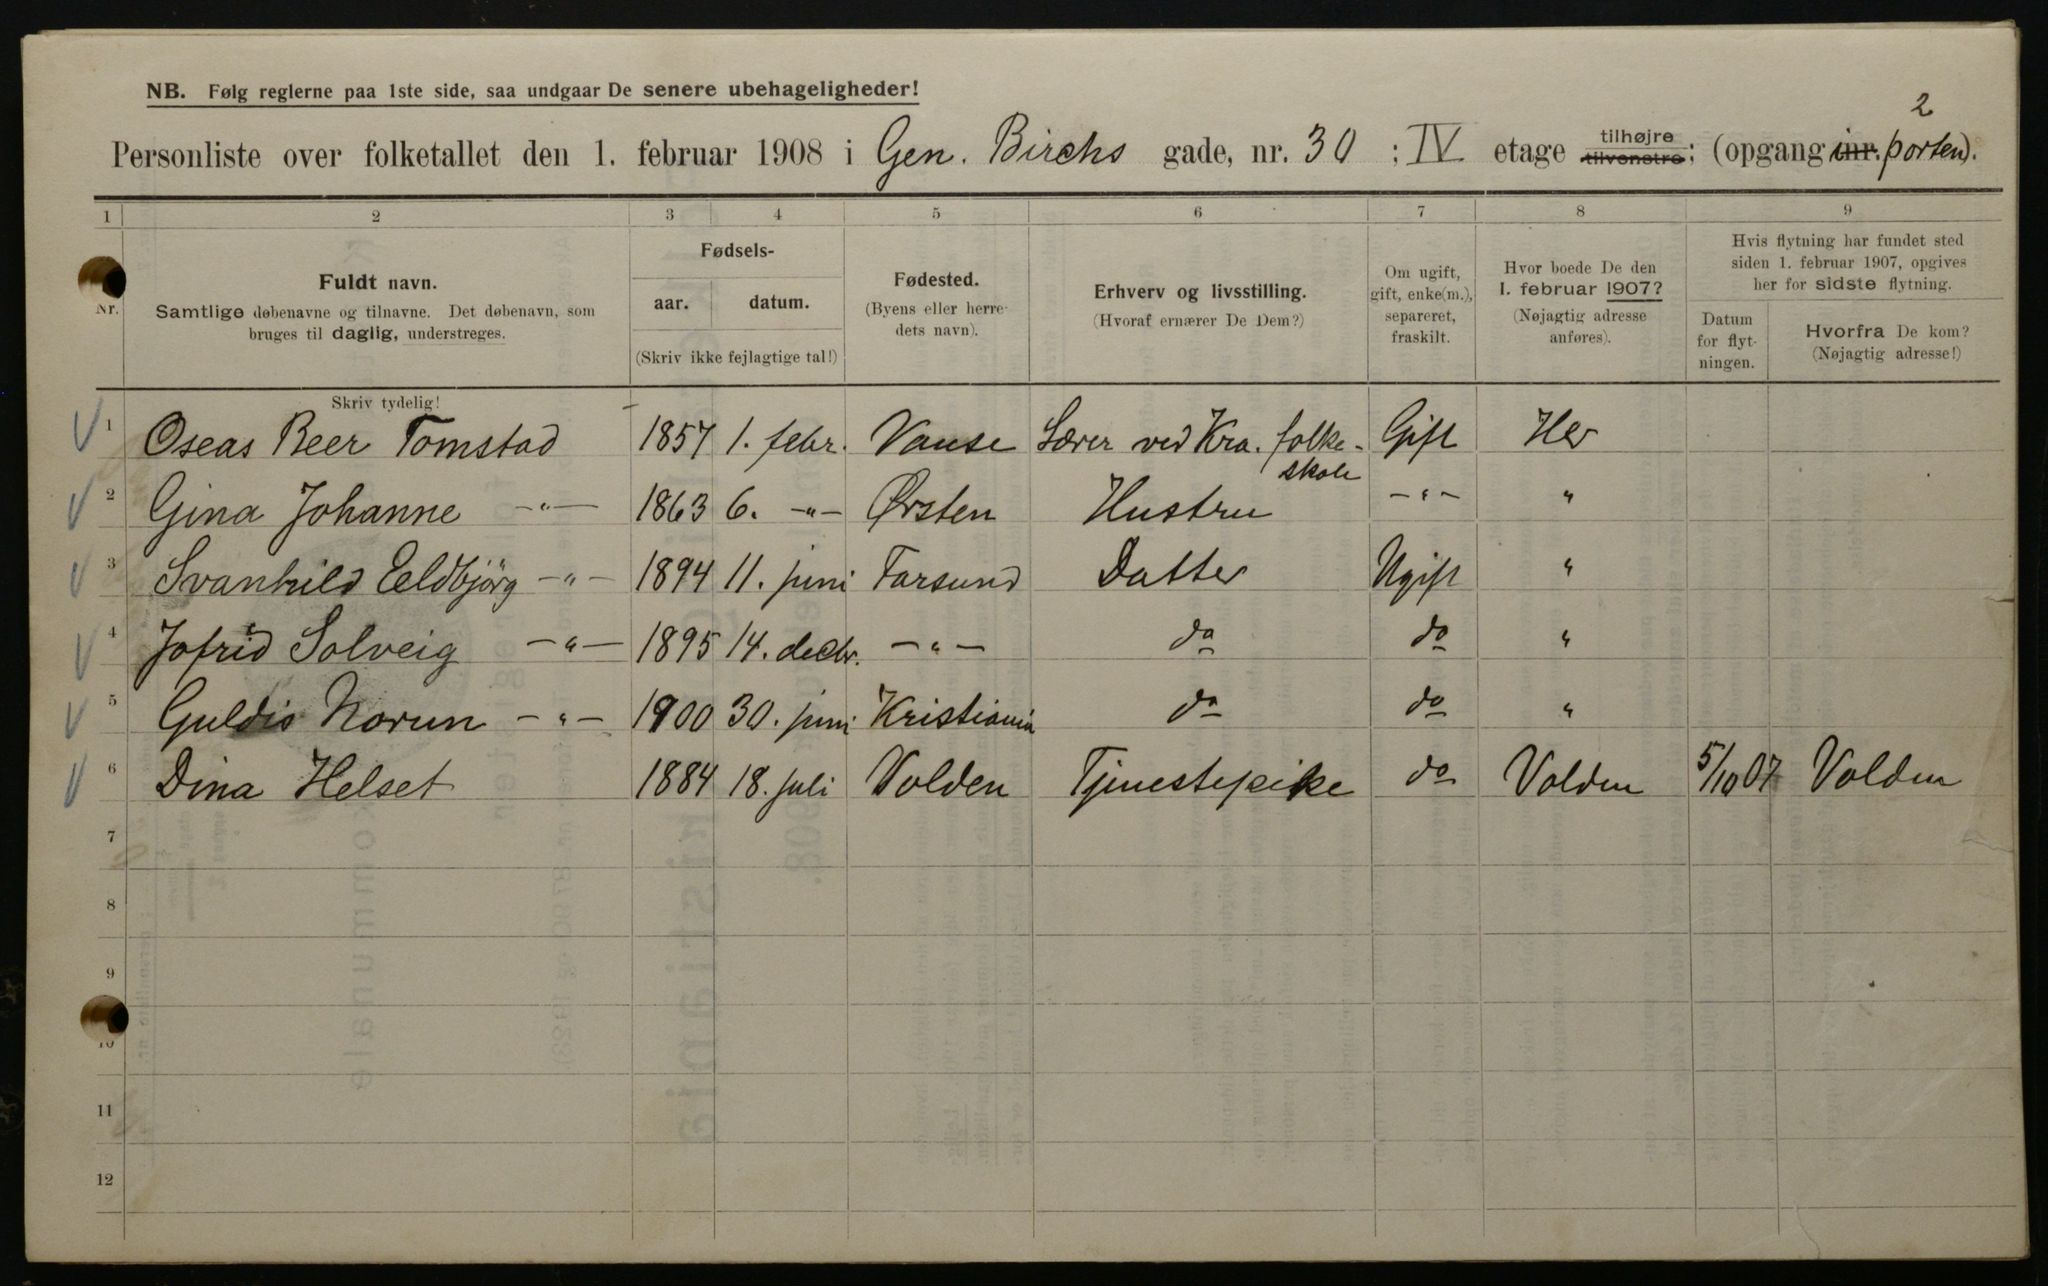 NB. Følg reglerne paa 1ste side, saa undgaar De senere ubehageligheder!
2
Personliste over folketallet den 1. februar 1908 i Gen. Birchs gade, nr. 30 ; IV etage tilhøjre tilvenstre; (opgang i nr. porten).
1 2 3 4 5 6 7 8 9
Nr.
Fuldt navn.
Samtlige døbenavne og tilnavne. Det døbenavn, som
bruges til daglig, understreges.
Fødsels-
aar. datum.
(Skriv ikke fejlagtige tal!)
Fødested.
(Byens eller herre-
dets navn).
Erhverv og livsstilling.
(Hvoraf ernærer De Dem?)
Om ugift,
gift, enke(m.),
separeret,
fraskilt.
Hvor boede De den
1. februar 1907?
(Nøjagtig adresse
anføres).
Hvis flytning har fundet sted
siden 1. februar 1907, opgives
her for sidste flytning.
Datum
for flyt-
ningen.
Hvorfra De kom?
(Nøjagtig adresse!)
Skriv tydelig!
1 Oseas Beer Tomstad 1857 1. febr. Vanse Lærer ved Kra. folke-
skole Gift Her
2 Gina Johanne -"- 1863 6. -"- Ørsten Hustru -"- "
3 Svanhild Eeldbjörg -"- 1894 11. juni Farsund Datter Ugift "
4 Jofrid Solveig -"- 1895 14. decbr. -"- do do "
5 Guldis Norun -"- 1900 30. juni Kristiania do do "
6 Dina Helset 1884 18. juli Volden Tjenestepike do Volden 5/10 07 Volden
7
8
9
10
11
12